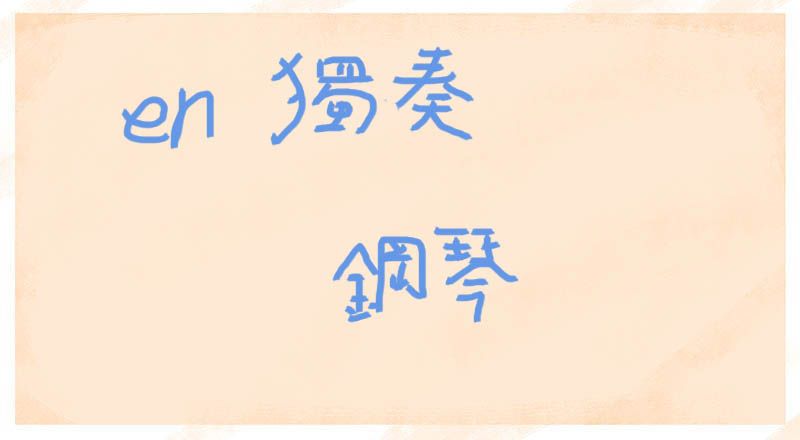 en 獨奏
鋼琴